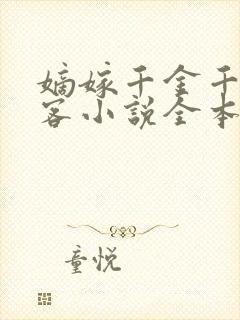 嫡嫁千金千
客小说全本
童悦